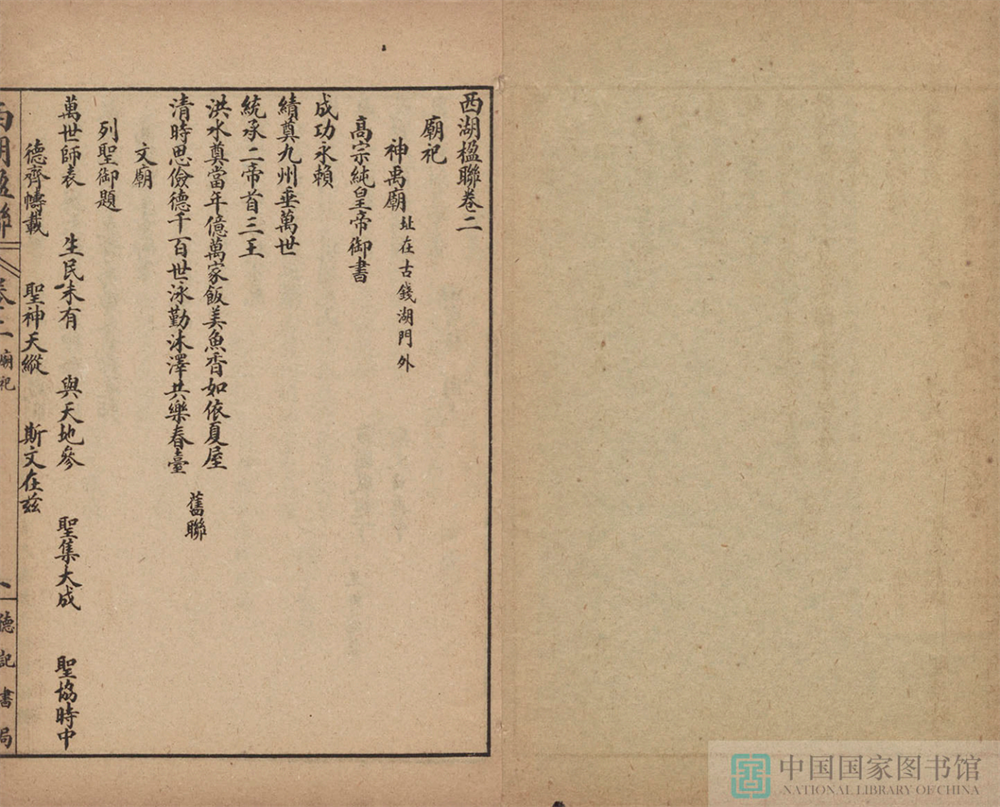 西湖楹聯卷二
廟祀
神禹廟 址在古錢湖門外
高宗純皇帝御書
成功永賴
績奠九州垂萬世
統承二帝首三王
洪水奠當年億萬家飯美魚香如依夏屋
清時思儉德千百世泳勤沐澤共樂春臺
舊聯
文廟
列聖御題
萬世師表 生民未有 與天地參 聖集大成 聖協時中
德齊幬載 聖神天縱 斯文在茲
西湖楹聯 卷二 廟祀 一 德記書局
中国国家图书馆
NATIONAL LIBRARY OF CHINA